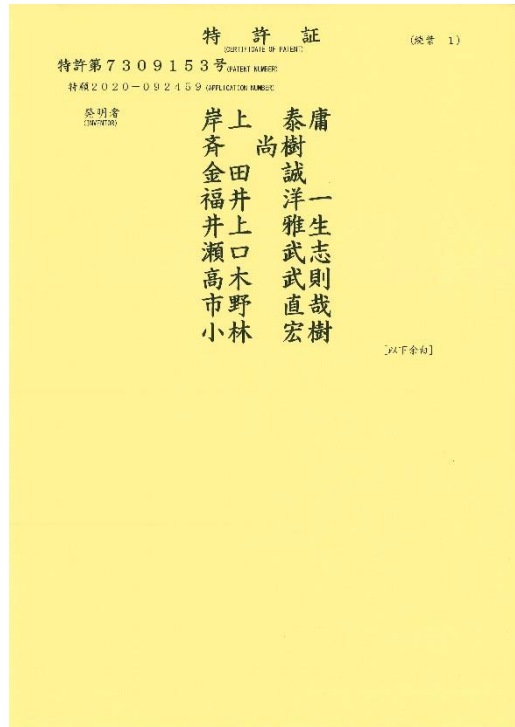 特許証
(CERTIFICATE OF PATENT)
(続葉 1)
特許第7309153号(PATENT NUMBER)
特願2020-092459(APPLICATION NUMBER)
発明者
(INVENTOR)
岸上 泰庸
斉 尚樹
金田 誠
福井 洋一
井上 雅生
瀬口 武志
高木 武則
市野 直哉
小林 宏樹
[以下余白]